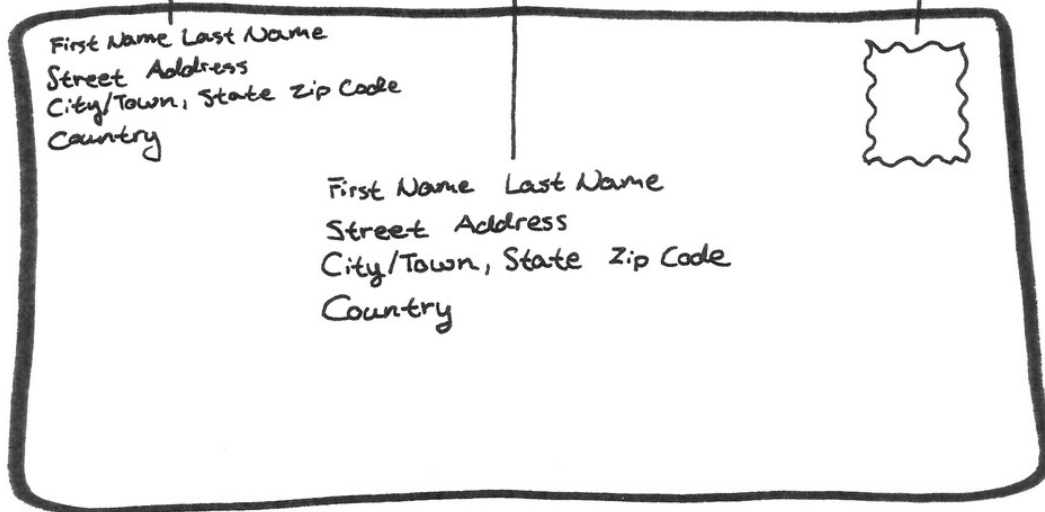 First Name Last Name
Street Address
City/Town, State Zip Code
Country
First Name Last Name
Street Address
City/Town, State Zip Code
Country